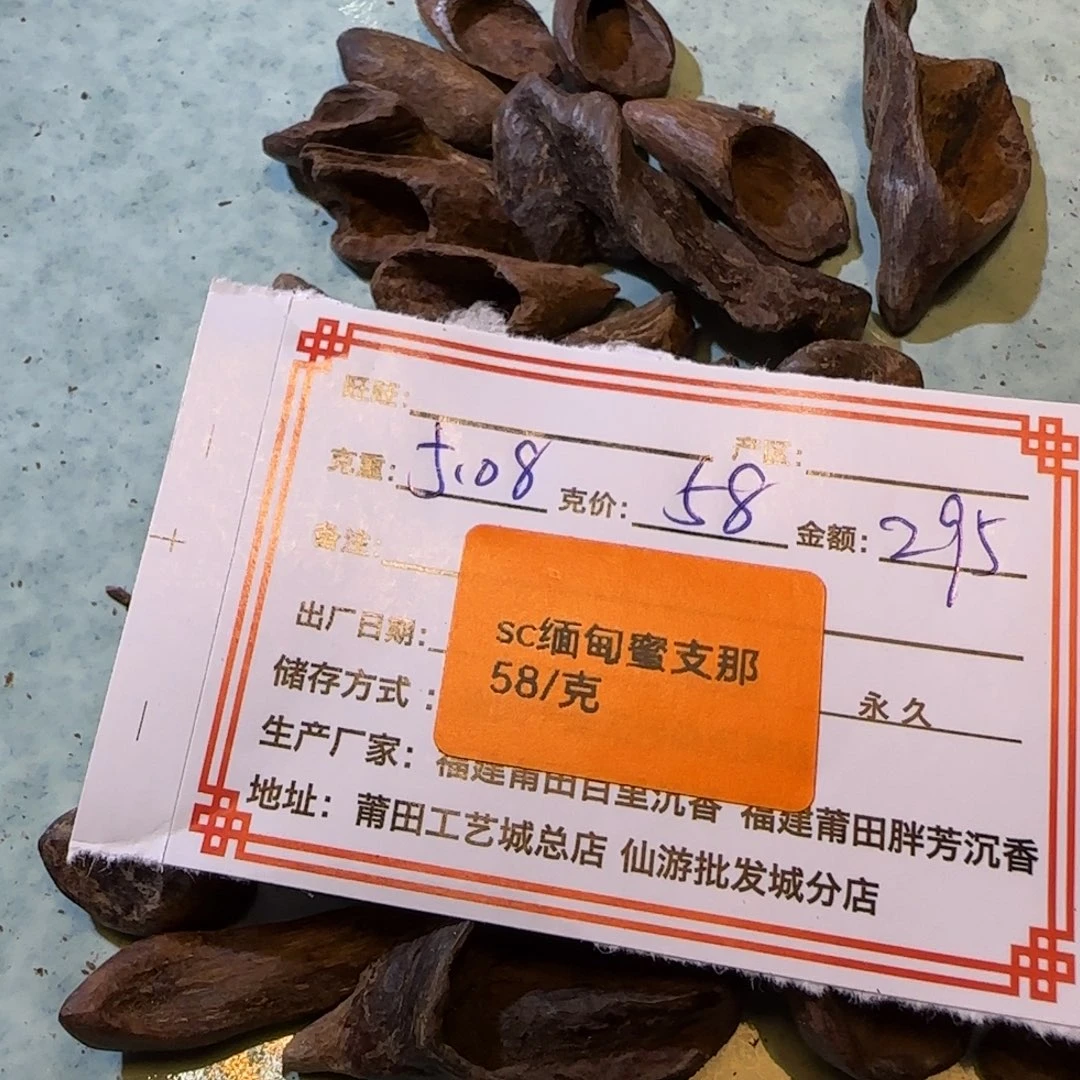 旺旺:
产区:
克重: 5.08 克价: 58 金额: 295
备注:
出厂日期:
sc缅甸蜜支那
58/克
储存方式:
永久
生产厂家: 福建莆田百里沉香 福建莆田胖芳沉香
地址: 莆田工艺城总店 仙游批发城分店